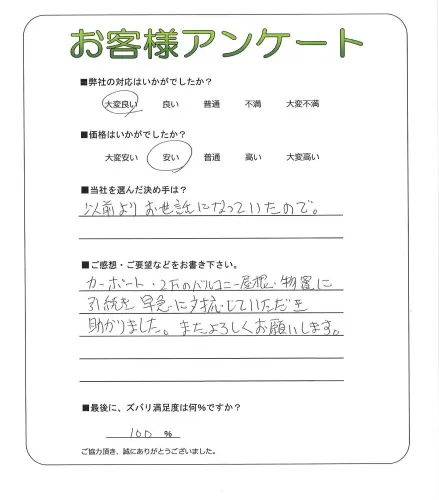 お客様アンケート
■弊社の対応はいかがでしたか？
大変良い 良い 普通 不満 大変不満
■価格はいかがでしたか？
大変安い 安い 普通 高い 大変高い
■当社を選んだ決め手は？
以前よりお世話になっていたので。
■ご感想・ご要望などをお書き下さい。
カーポート・2Fのバルコニー屋根・物置に
引続き早急に対応していただき
助かりました。またよろしくお願いします。
■最後に、ズバリ満足度は何％ですか？
100 %
ご協力頂き、誠にありがとうございました。